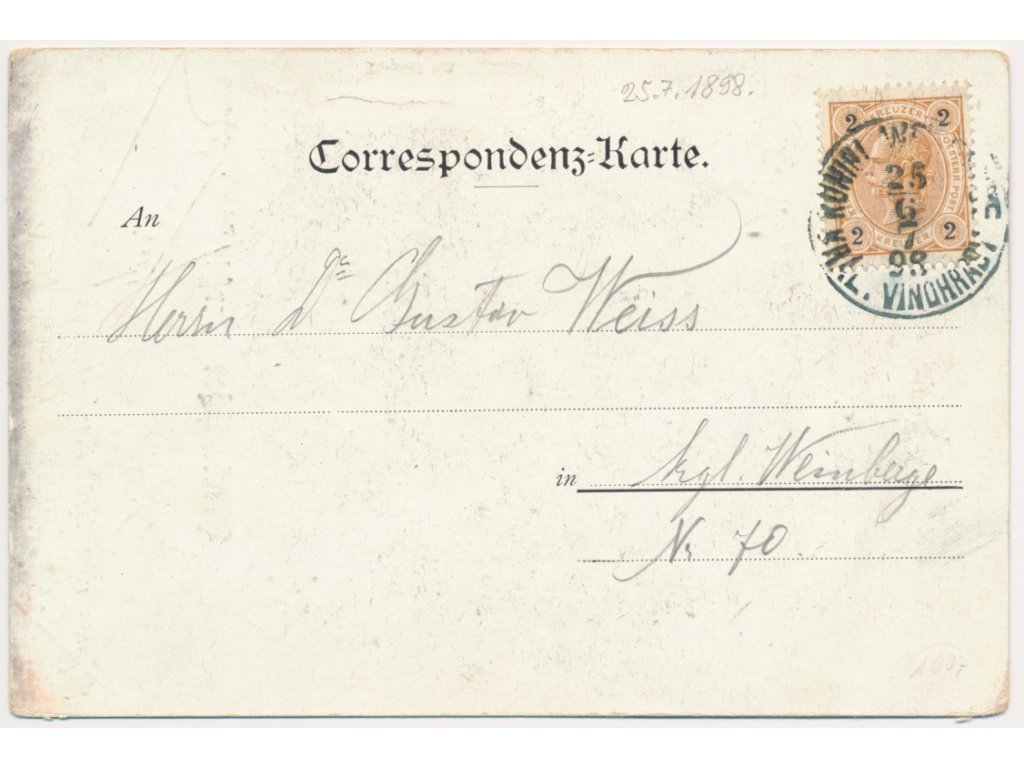 25.7.1898.
Correspondenz-Karte.
An
Herrn Dr Gustav Weiss
in Kgl. Weinberge
Nr 70.
2 KREUZER 2
2 KREUZER 2
25
6
7
98
VINOHRADY
100,-